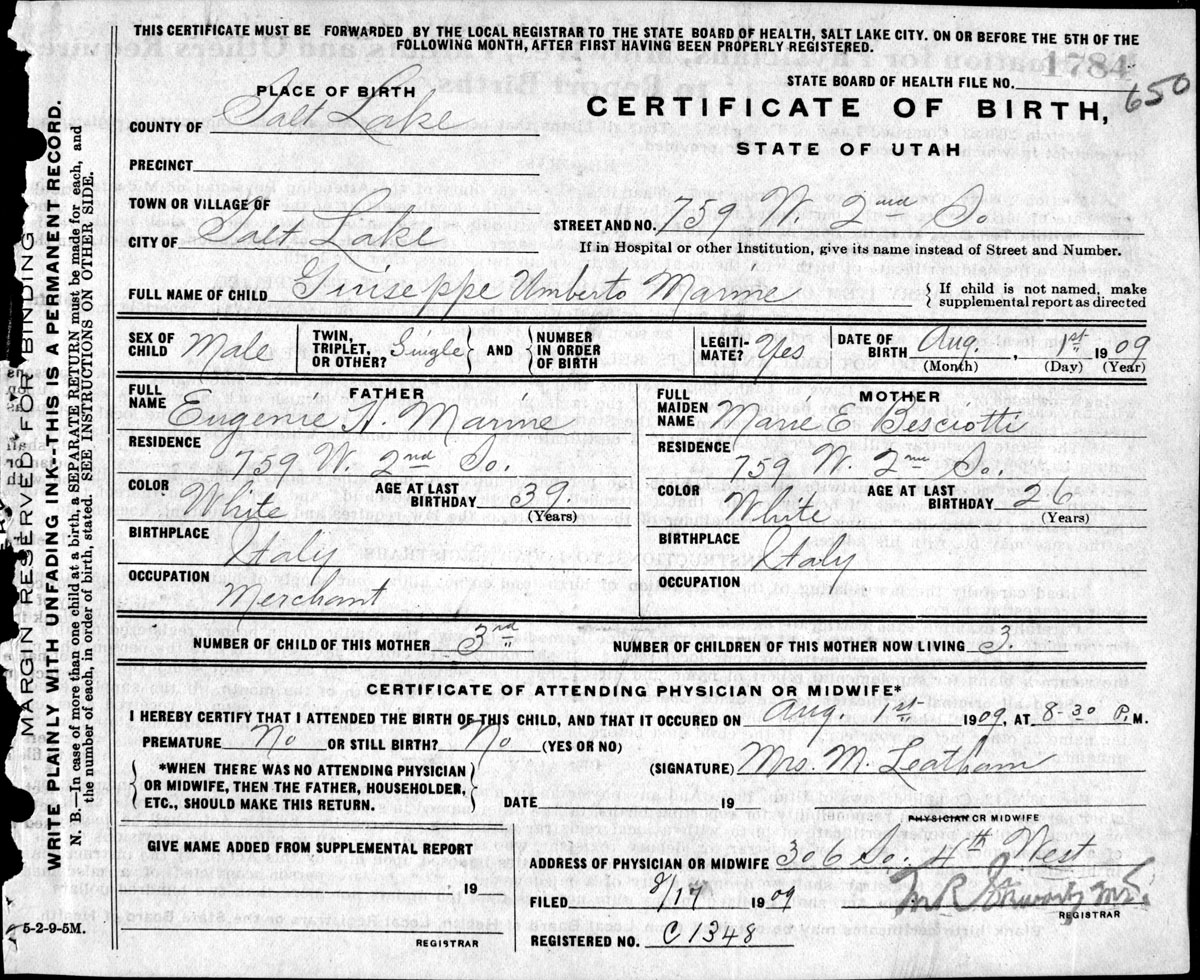 THIS CERTIFICATE MUST BE FORWARDED BY THE LOCAL REGISTRAR TO THE STATE BOARD OF HEALTH, SALT LAKE CITY. ON OR BEFORE THE 5TH OF THE
FOLLOWING MONTH, AFTER FIRST HAVING BEEN PROPERLY REGISTERED.
STATE BOARD OF HEALTH FILE NO. 1784
650
PLACE OF BIRTH
CERTIFICATE OF BIRTH,
COUNTY OF Salt Lake
STATE OF UTAH
PRECINCT
TOWN OR VILLAGE OF
STREET AND NO. 759 W. 2nd So.
CITY OF Salt Lake
If in Hospital or other Institution, give its name instead of Street and Number.
FULL NAME OF CHILD Giuseppe Umberto Marine
If child is not named, make
supplemental report as directed
SEX OF CHILD Male
TWIN, TRIPLET, OR OTHER? Single
AND NUMBER IN ORDER OF BIRTH
LEGITI-MATE? Yes
DATE OF BIRTH Aug. , 1st 1909
(Month) (Day) (Year)
FATHER
FULL NAME Eugenie A. Marine
RESIDENCE
759 W. 2nd So.
COLOR White
AGE AT LAST BIRTHDAY 39
(Years)
BIRTHPLACE
Italy
OCCUPATION
Merchant
MOTHER
FULL MAIDEN NAME Marie E Besciotti
RESIDENCE
759 W. 2nd So.
COLOR White
AGE AT LAST BIRTHDAY 26
(Years)
BIRTHPLACE
Italy
OCCUPATION
NUMBER OF CHILD OF THIS MOTHER 3rd
NUMBER OF CHILDREN OF THIS MOTHER NOW LIVING 3.
CERTIFICATE OF ATTENDING PHYSICIAN OR MIDWIFE*
I HEREBY CERTIFY THAT I ATTENDED THE BIRTH OF THIS CHILD, AND THAT IT OCCURED ON Aug. 1st 1909, AT 8-30 P.M.
PREMATURE No OR STILL BIRTH? No (YES OR NO)
*WHEN THERE WAS NO ATTENDING PHYSICIAN
OR MIDWIFE, THEN THE FATHER, HOUSEHOLDER,
ETC., SHOULD MAKE THIS RETURN.
(SIGNATURE) Mrs. M. Leatham
DATE 19
PHYSICIAN OR MIDWIFE
GIVE NAME ADDED FROM SUPPLEMENTAL REPORT
19
REGISTRAR
ADDRESS OF PHYSICIAN OR MIDWIFE 306 So. 4th West
FILED 8/17 1909
REGISTRAR
REGISTERED NO. C1348
5-2-9-5M.
MARGIN RESERVED FOR BINDING
WRITE PLAINLY WITH UNFADING INK--THIS IS A PERMANENT RECORD.
N. B.—In case of more than one child at a birth, a SEPARATE RETURN must be made for each, and
the number of each, in order of birth, stated. SEE INSTRUCTIONS ON OTHER SIDE.